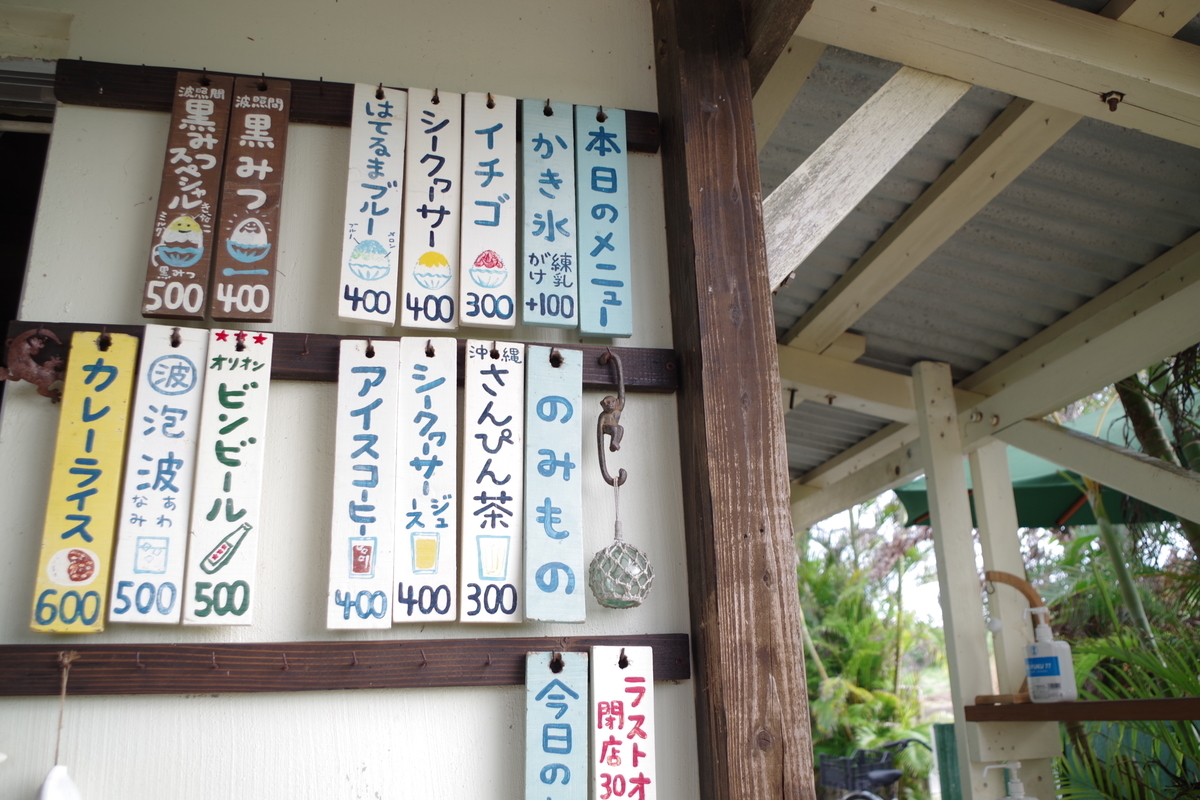 本日のメニュー
かき氷
練乳
がけ
+100
イチゴ
300
シークヮサー
400
はてるまブルー
メロン
ブルー
400
波照間
黒みつ
400
波照間
黒みつ
スペシャル
きなこ
ミルク
黒みつ
500
のみもの
沖縄
さんぴん茶
300
シークヮサー
ジュース
400
アイスコーヒー
400
オリオン
ビンビール
500
波
泡波
あわ
なみ
500
カレーライス
600
今日の
ラストオ
閉店30